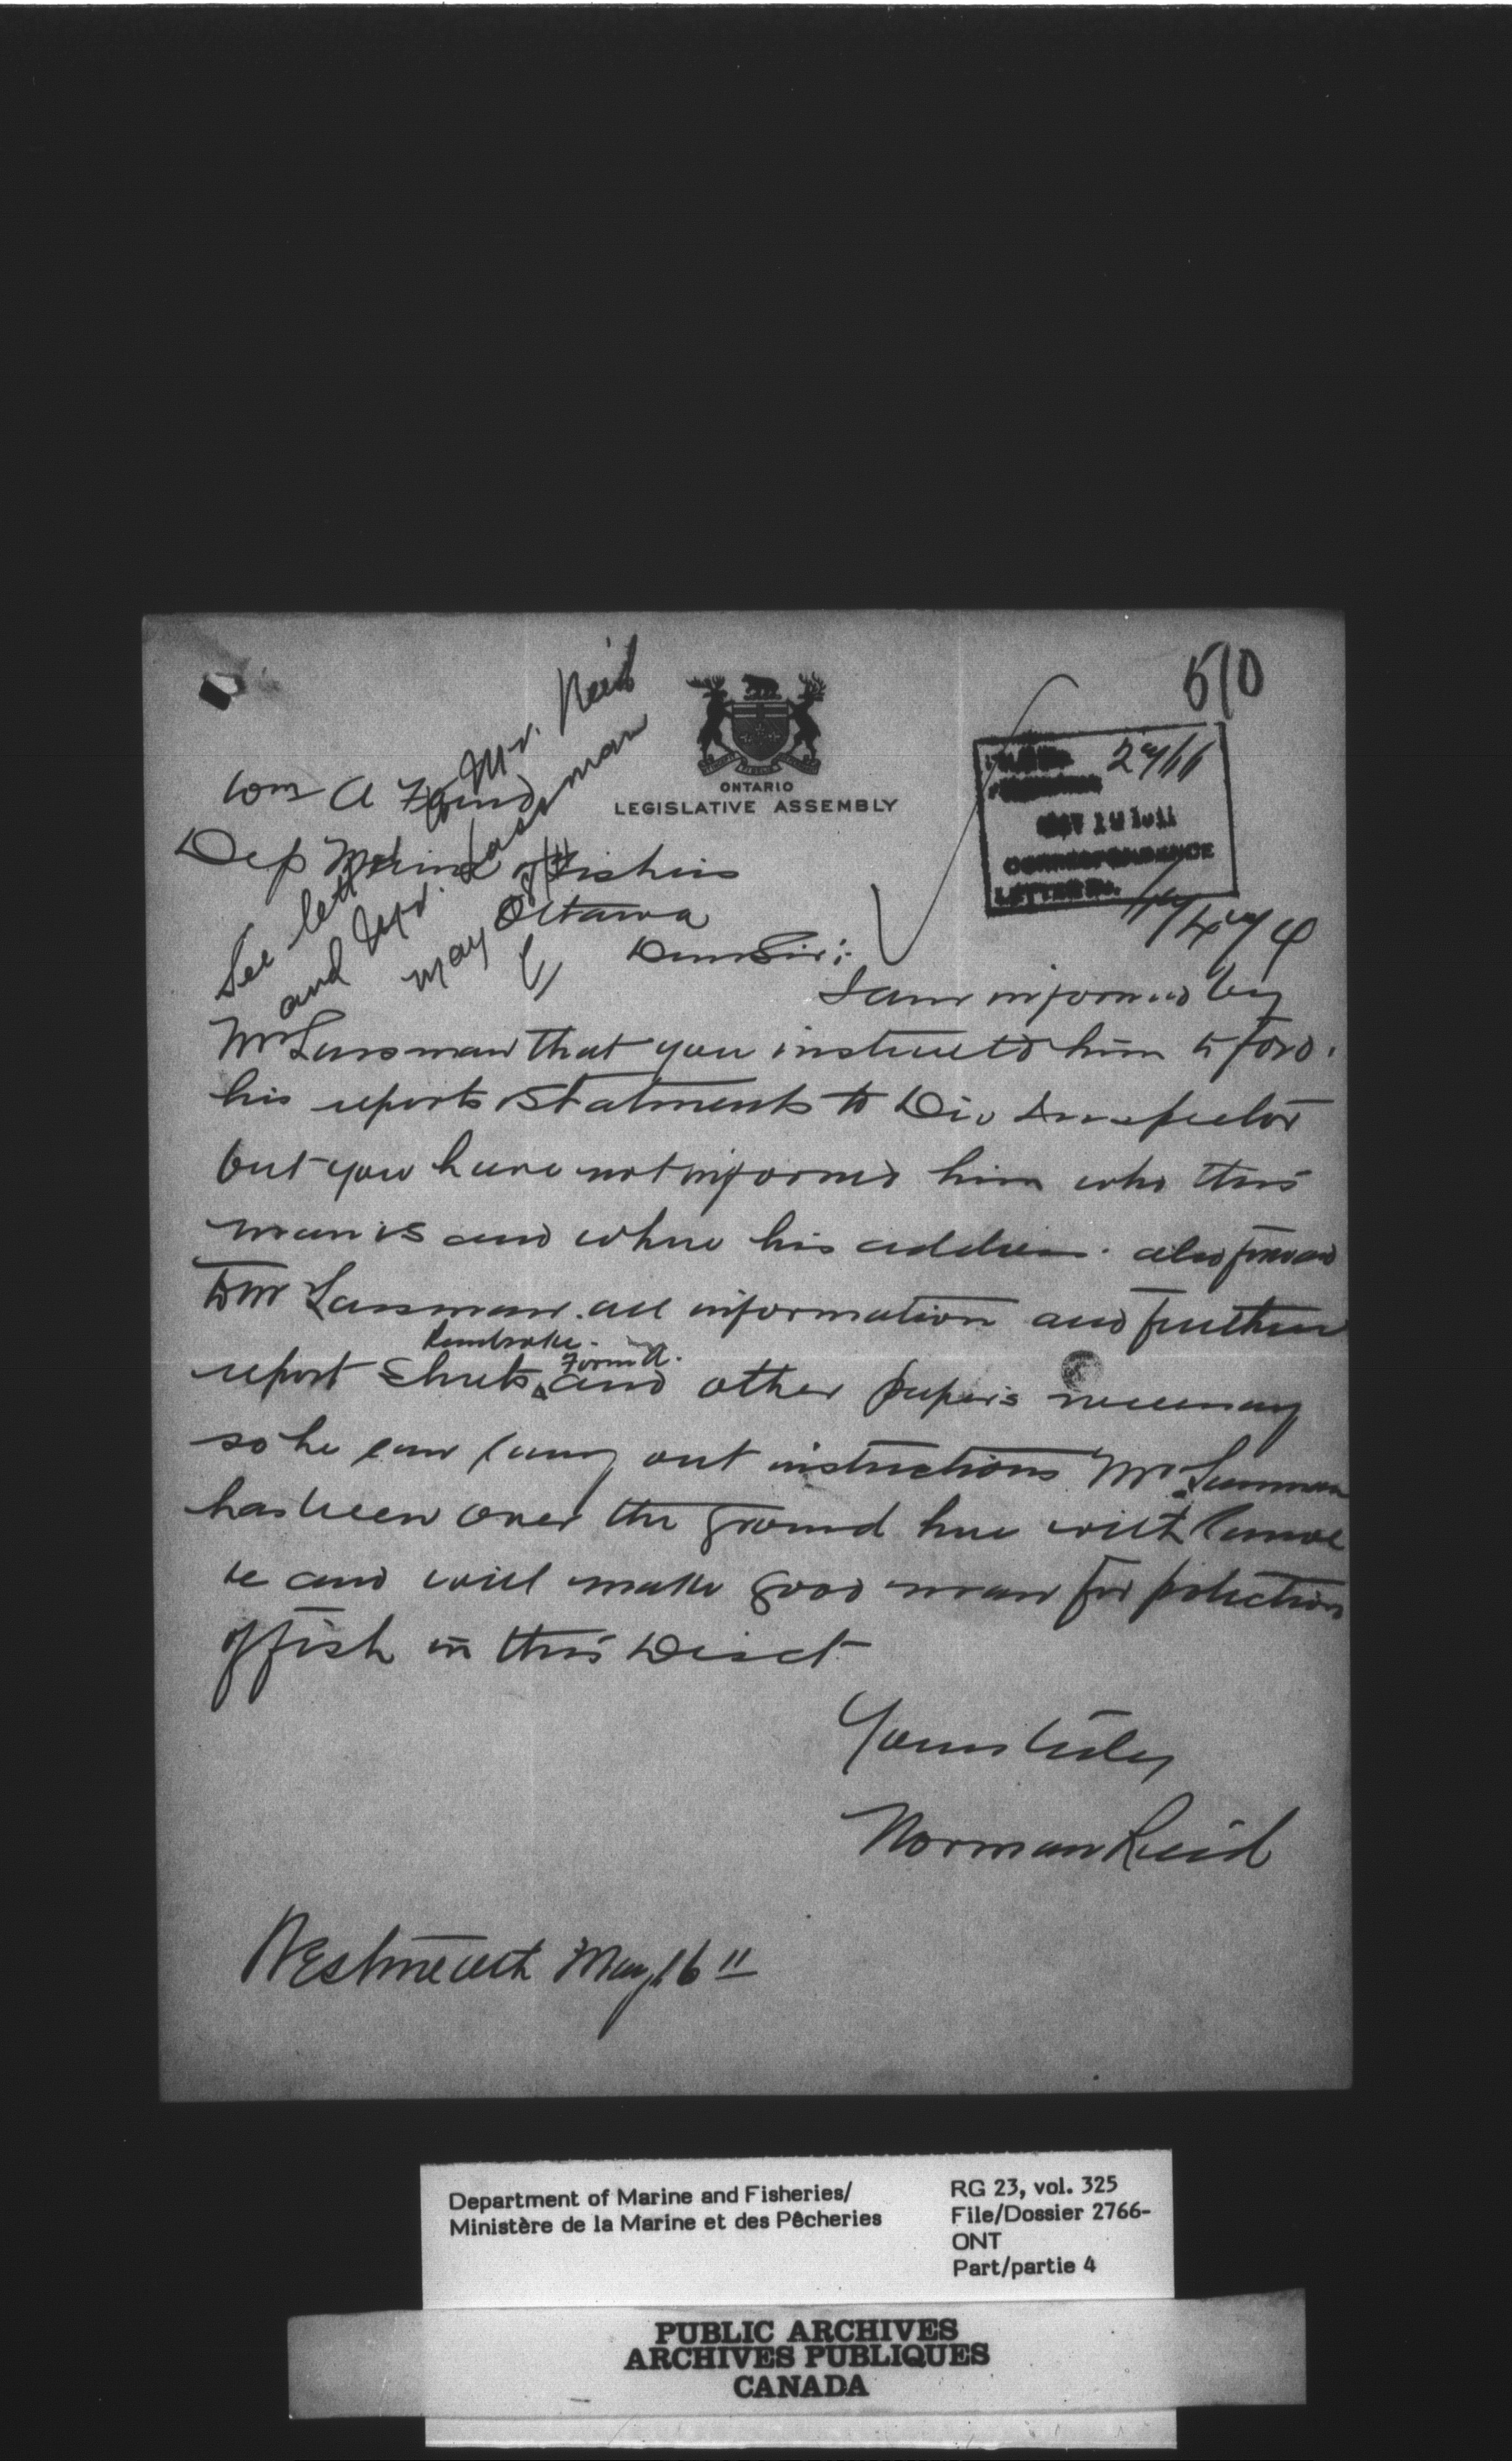 510
ONTARIO
LEGISLATIVE ASSEMBLY
Wm A Found
Dep Marine & Fisheries
Ottawa
See letter to Mr. Reid
and Mr. Lassman
May
MAY 1911
CORRESPONDENCE
LETTER No.
Dear Sir:
I am informed by
Mr Lassman that you instructed him to ford.
his reports Statments to Div Inspector
but you have not informed him who this
man is and where his address. also forward
to Mr Lassman. all information and further
Pembroke. Form A.
report Sheets and other papers necessary
so he can carry out instructions Mr Lassman
has been over the ground here with Canoe
te and will make good man for protection
of fish in this Disct
Yours truly
Norman Reid
Westmeath May 16 11
Department of Marine and Fisheries/
Ministère de la Marine et des Pêcheries
RG 23, vol. 325
File/Dossier 2766-
ONT
Part/partie 4
PUBLIC ARCHIVES
ARCHIVES PUBLIQUES
CANADA